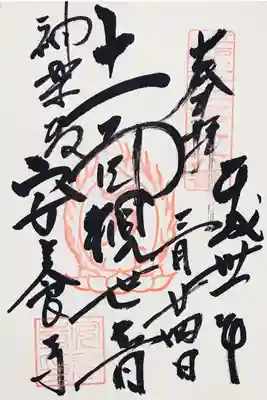 奉拝
平成丗年
月廿四日
十一面観世音
神楽坂
安養寺